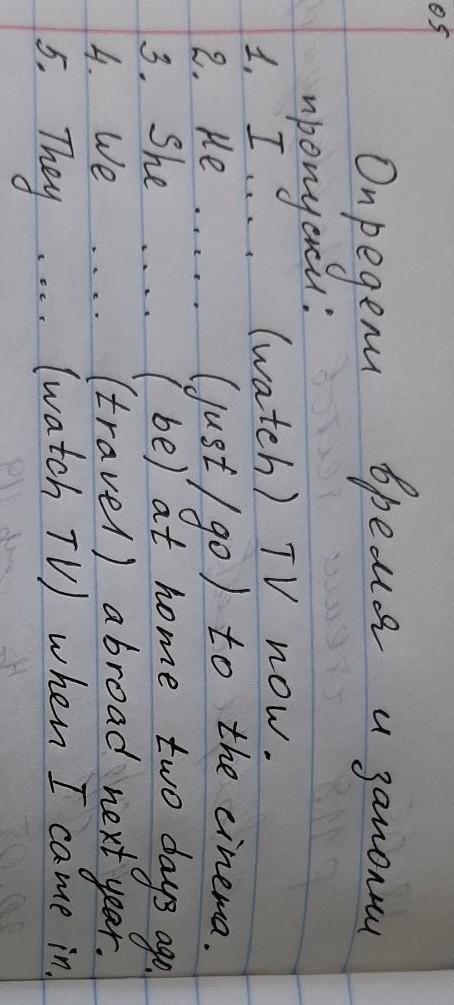 05
Определи время и заполни
пропуски:
1. I .... (watch) TV now.
2. He ...... (just/go) to the cinema.
3. She .... (be) at home two days ago.
4. We .... (travel) abroad next year.
5. They .... (watch TV) when I came in.